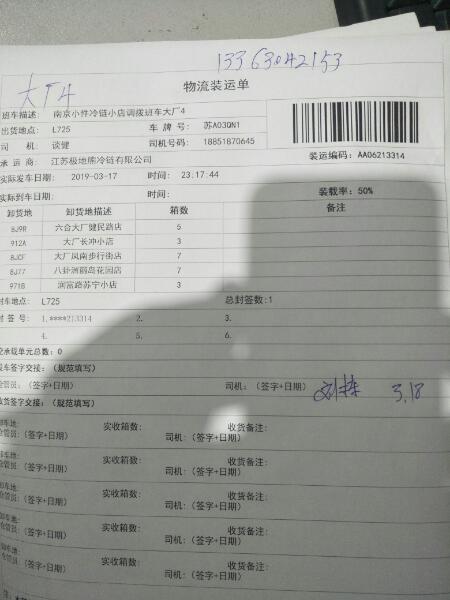 13363042153
大厂4
物流装运单
班车描述: 南京小件冷链小店调拨班车大厂4
出货地点: L725 车 牌 号: 苏A03QN1
司 机: 谈健 司机号码: 18851870645
承 运 商: 江苏极地熊冷链有限公司 装运编码: AA06213314
实际发车日期: 2019-03-17 时间: 23.17:44
实际到车日期: 时间: 装载率: 50%
卸货地 卸货地描述 箱数 备注
8J9R 六合大厂健民路店 5
912A 大厂长冲小店 3
8JCF 大厂凤南步行街店 7
8J77 八卦洲鹂岛花园店 7
971B 润富路苏宁小店 3
封车地点: L725 总封签数:1
封 签 号: 1.****213314 2. 3.
4. 5. 6.
承载单元总数: 0
车签字交接: (规范填写)
仓管员: (签字+日期) 司机: (签字+日期) 3.18
收货签字交接: (规范填写)
卸车地: 实收箱数: 收货备注:
仓管员: (签字+日期) 司机: (签字+日期)
卸车地: 实收箱数: 收货备注:
仓管员: (签字+日期) 司机: (签字+日期)
卸车地: 实收箱数: 收货备注:
仓管员: (签字+日期) 司机: (签字+日期)
卸车地: 实收箱数: 收货备注:
仓管员: (签字+日期) 司机: (签字+日期)
卸车地: 实收箱数: 收货备注:
仓管员: (签字+日期) 司机: (签字+日期)